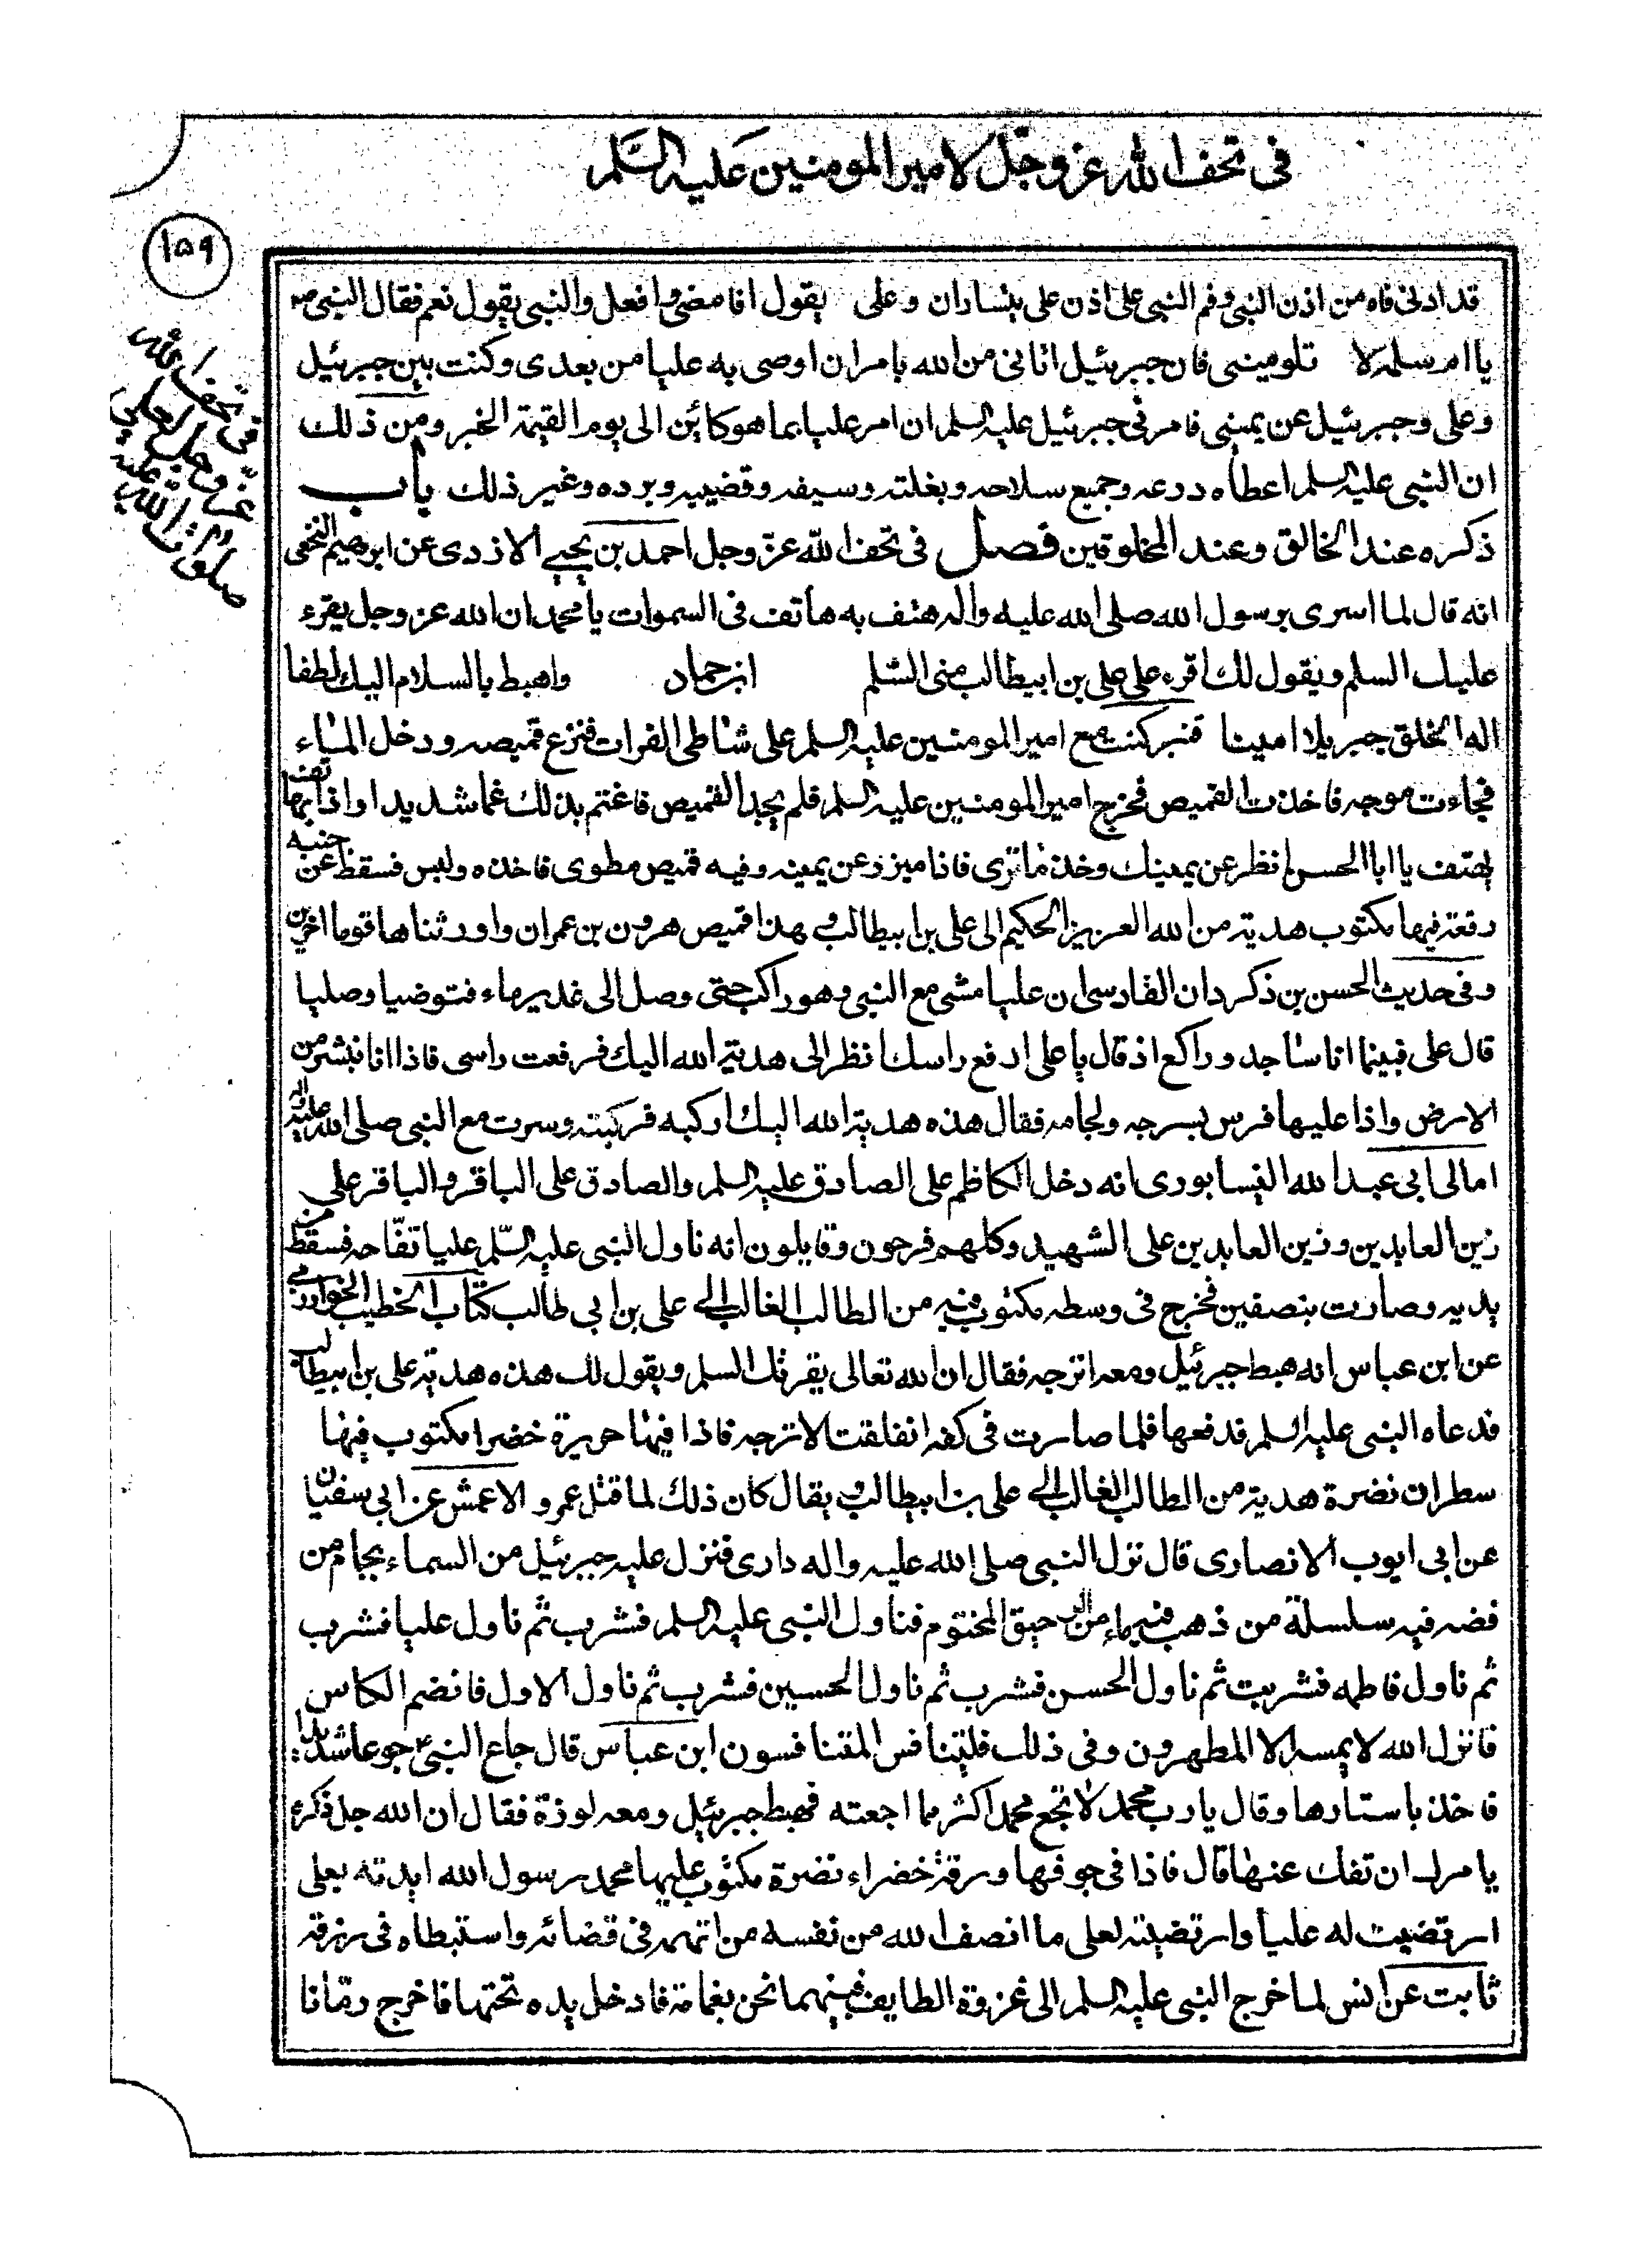 في تحف الله عز وجل لامير المومنين عليه السلم
١٥٩
قد ادنى فاه من اذن النبي وفم النبي على اذن على يتساران وعلى يقول افامضى وافعل والنبي يقول نعم فقال النبي ص
يا ام سلمه لا تلومينى فان جبرئيل اتانى من الله بامر ان اوصى به عليا من بعدى وكنت بين جبرئيل
وعلى وجبرئيل عن يمينى فامرنى جبرئيل عليه السلم ان امر عليا بما هو كائن الى يوم القيمة الخبر ومن ذلك
ان النبي عليه السلم اعطاه درعه وجميع سلاحه وبغلته وسيفه وقضيبه وبرده وغير ذلك باب
ذكره عند الخالق وعند المخلوقين فصل فى تحف الله عز وجل احمد بن يحيى الازدى عن ابرهيم النخعى
انه قال لما اسرى برسول الله صلى الله عليه واله هتف به هاتف فى السموات يا محمد ان الله عز وجل يقرء
عليك السلم ويقول لك اقرء على على بن ابيطالب منى السلم ابن حماد واهبط بالسلام اليك لطفا
اله الخلق جبريلا امينا قنبر كنت مع امير المومنين عليه السلم على شاطى الفرات فنزع قميصه ودخل الماء
فجاءت موجه فاخذت القميص فخرج امير المومنين عليه السلم فلم يجد القميص فاغتم بذلك غما شديدا واذا بهاتف
يهتف يا ابا الحسن انظر عن يمينك وخذ ما ترى فاذا ميزر عن يمينه وفيه قميص مطوى فاخذه ولبس فسقط عن جنبه
رقعة فيها مكتوب هدية من الله العزيز الحكيم الى على بن ابيطالب هذا قميص هرون بن عمران واورثناها قوما اخرين
وفى حديث الحسن بن ذكردان الفارسى ان عليا مشى مع النبي وهو راكب حتى وصل الى غدير ماء فتوضيا وصليا
قال على فبينما انا ساجد وراكع اذ قال يا على ارفع راسك انظر الى هدية الله اليك فرفعت راسى فاذا انا بنشر من
الارض واذا عليها فرس بسرجه ولجامه فقال هذه هدية الله اليك اركبه فركبته وسرت مع النبي صلى الله عليه واله
امالى ابى عبد الله النيسابورى انه دخل الكاظم على الصادق عليه السلم والصادق على الباقر والباقر على
زين العابدين وزين العابدين على الشهيد وكلهم فرحون وقايلون انه ناول النبي عليه السلم عليا تفاحه فسقط من
يديه وصارت بنصفين فخرج فى وسطه مكتوب فيه من الطالب الغالب الى على بن ابى طالب كتاب الخطيب الخوارزمى
عن ابن عباس انه هبط جبرئيل ومعه اترجه فقال ان الله تعالى يقرئك السلم ويقول لك هذه هدية على بن ابيطالب
فدعاه النبي عليه السلم فدفعها فلما صارت فى كفه انفلقت الاترجه فاذا فيها حريرة خضرا مكتوب فيها
سطران نضرة هدية من الطالب الغالب الى على بن ابيطالب ويقال كان ذلك لما قتل عمرو الاعمش عن ابى سفيان
عن ابى ايوب الانصارى قال نزل النبي صلى الله عليه واله دارى فنزل عليه جبرئيل من السماء بجام من
فضه فيه سلسلة من ذهب فيه ماء من الرحيق المختوم فناول النبي عليه السلم فشرب ثم ناول عليا فشرب
ثم ناول فاطمه فشربت ثم ناول الحسن فشرب ثم ناول الحسين فشرب ثم ناول الاول فانضم الكاس
فانزل الله لا يمسه الا المطهرون وفى ذلك فليتنافس المتنافسون ابن عباس قال جاع النبي جوعا شديدا
فاخذ باستارها وقال يا رب محمد لا تجع محمدا اكثر مما اجعته فهبط جبرئيل ومعه لوزة فقال ان الله جل ذكره
يامرك ان تفك عنها قال فاذا فى جوفها ورقة خضراء نضرة مكتوب عليها محمد رسول الله ايدته بعلى
ارتضيت له عليا وارتضيته لعلى ما انصف الله من نفسه من اتهمه فى قضائه واستبطاه فى رزقه
ثابت عن انس لما خرج النبي عليه السلم الى غزوة الطايف فبينهما نحن بغمامة فادخل يده تحتها فاخرج رمانا
فى تحف الله
عز وجل لعلى
صلوات الله عليه